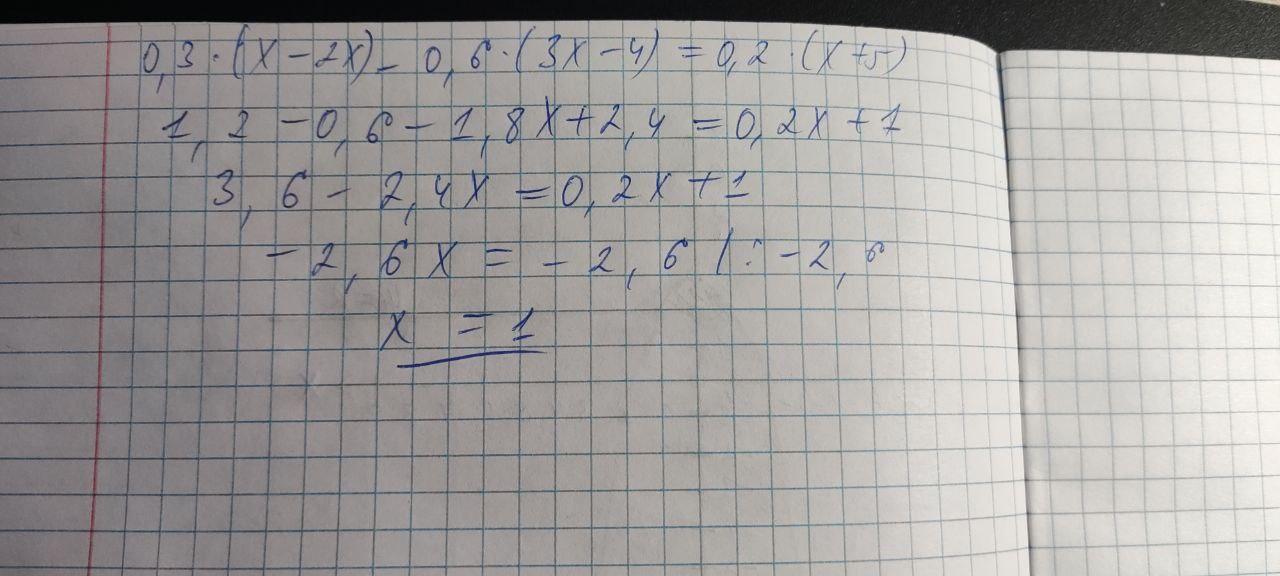 0,3·(x-2x)-0,6·(3x-4)=0,2·(x+5)
1,2-0,6-1,8x+2,4=0,2x+1
3,6-2,4x=0,2x+1
-2,6x=-2,6 |:-2,6
x=1